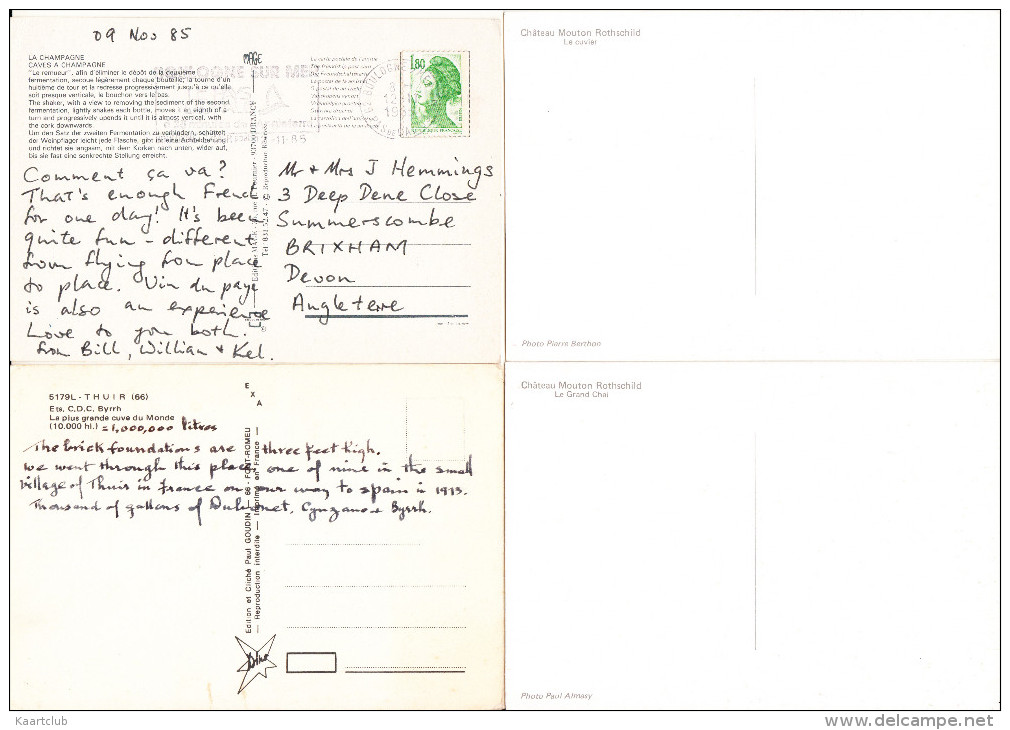 09 Nov 85
LA CHAMPAGNE
CAVES A CHAMPAGNE
"Le remueur", afin d'éliminer le dépôt de la deuxième
fermentation, secoue légèrement chaque bouteille, la tourne d'un
huitième de tour et la redresse progressivement jusqu'à ce qu'elle
soit presque verticale, le bouchon vers le bas.
The shaker, with a view to removing the sediment of the second
fermentation, lightly shakes each bottle, moves it an eighth of a
turn and progressively upends it until it is almost vertical, with
the cork downwards.
Um den Satz der zweiten Fermentation zu verhindern, schüttelt
der Weinpfleger leicht jede Flasche, gibt ihr eine Achteldrehung
und richtet sie langsam, mit dem Korken nach unten, wider auf,
bis sie fast eine senkrechte Stellung erreicht.
MAGE
BOULOGNE SUR MER
1,80
Comment ça va?
That's enough French
for one day! It's been
quite fun - different
from flying from place
to place. Vin du pays
is also an experience
Love to you both.
from Bill, William + Kel.
Mr + Mrs J Hemmings
3 Deep Dene Close
Summerscombe
BRIXHAM
Devon
Angleterre
Château Mouton Rothschild
Le cuvier
Photo Pierre Berthon
5179L - THUIR (66)
Ets. C.D.C. Byrrh
La plus grande cuve du Monde
(10.000 hl.) = 1,000,000 litres
EXA
The brick foundations are three feet high.
We went through this place, one of nine in the small
village of Thuir in France on our way to Spain in 1973.
Thousand of gallons of Dubonet, Cynzano + Byrrh.
Edition et Cliché Paul GOUDIN — 66 - FONT-ROMEU
— Reproduction interdite — Imprimé en France —
Château Mouton Rothschild
Le Grand Chai
Photo Paul Almasy
Kaartclub
www.delcampe.net